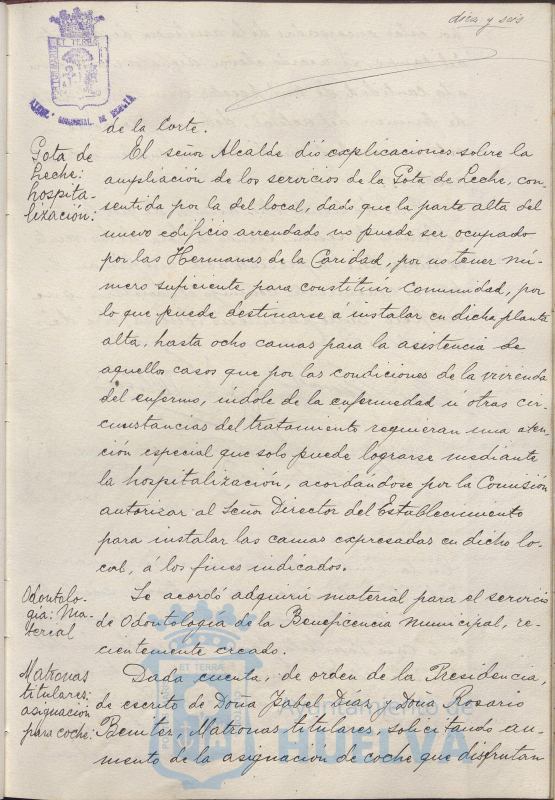 diez y seis
PORTUS MARIS ET TERRÆ
de la Corte.
Gota de
Leche:
hospita-
lización:
El señor Alcalde dió explicaciones sobre la
ampliación de los servicios de la Gota de Leche, con-
sentida por la del local, dado que la parte alta del
nuevo edificio arrendado no puede ser ocupado
por las Hermanas de la Caridad, por no tener nú-
mero suficiente para constituir Comunidad, por
lo que puede destinarse á instalar en dicha planta
alta, hasta ocho camas para la asistencia de
aquellos casos que por las condiciones de la vivienda
del enfermo, índole de la enfermedad u otras cir-
cunstancias del tratamiento requieran una aten-
ción especial que solo puede lograrse mediante
la hospitalización, acordándose por la Comisión
autorizar al Señor Director del Establecimiento
para instalar las camas expresadas en dicho lo-
cal, á los fines indicados.
Odontolo-
gía: Ma-
terial
Se acordó adquirir material para el servicio
de Odontología de la Beneficencia municipal, re-
cientemente creado.
Matronas
titulares:
asignación
para coche:
Dada cuenta, de orden de la Presidencia,
de escrito de Doña Isabel Díaz y Doña Rosario
Benitez, Matronas titulares, solicitando au-
mento de la asignación de coche que disfrutan
Ayuntamiento de
HUELVA